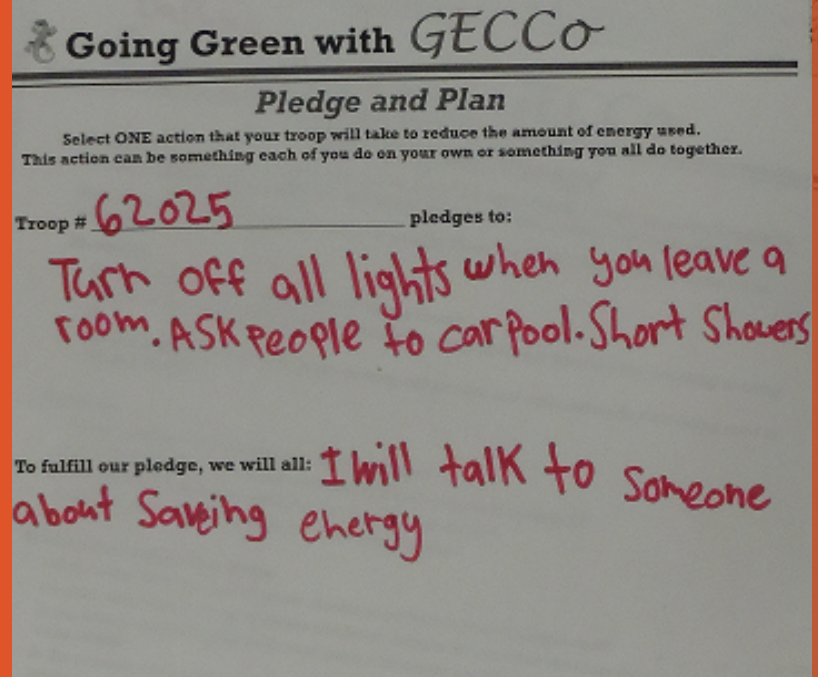 Going Green with GECCo
Pledge and Plan
Select ONE action that your troop will take to reduce the amount of energy used.
This action can be something each of you do on your own or something you all do together.
Troop # 62025 pledges to:
Turn off all lights when you leave a
room. ASK people to carpool. Short Showers
To fulfill our pledge, we will all: I will talk to someone
about Saveing energy